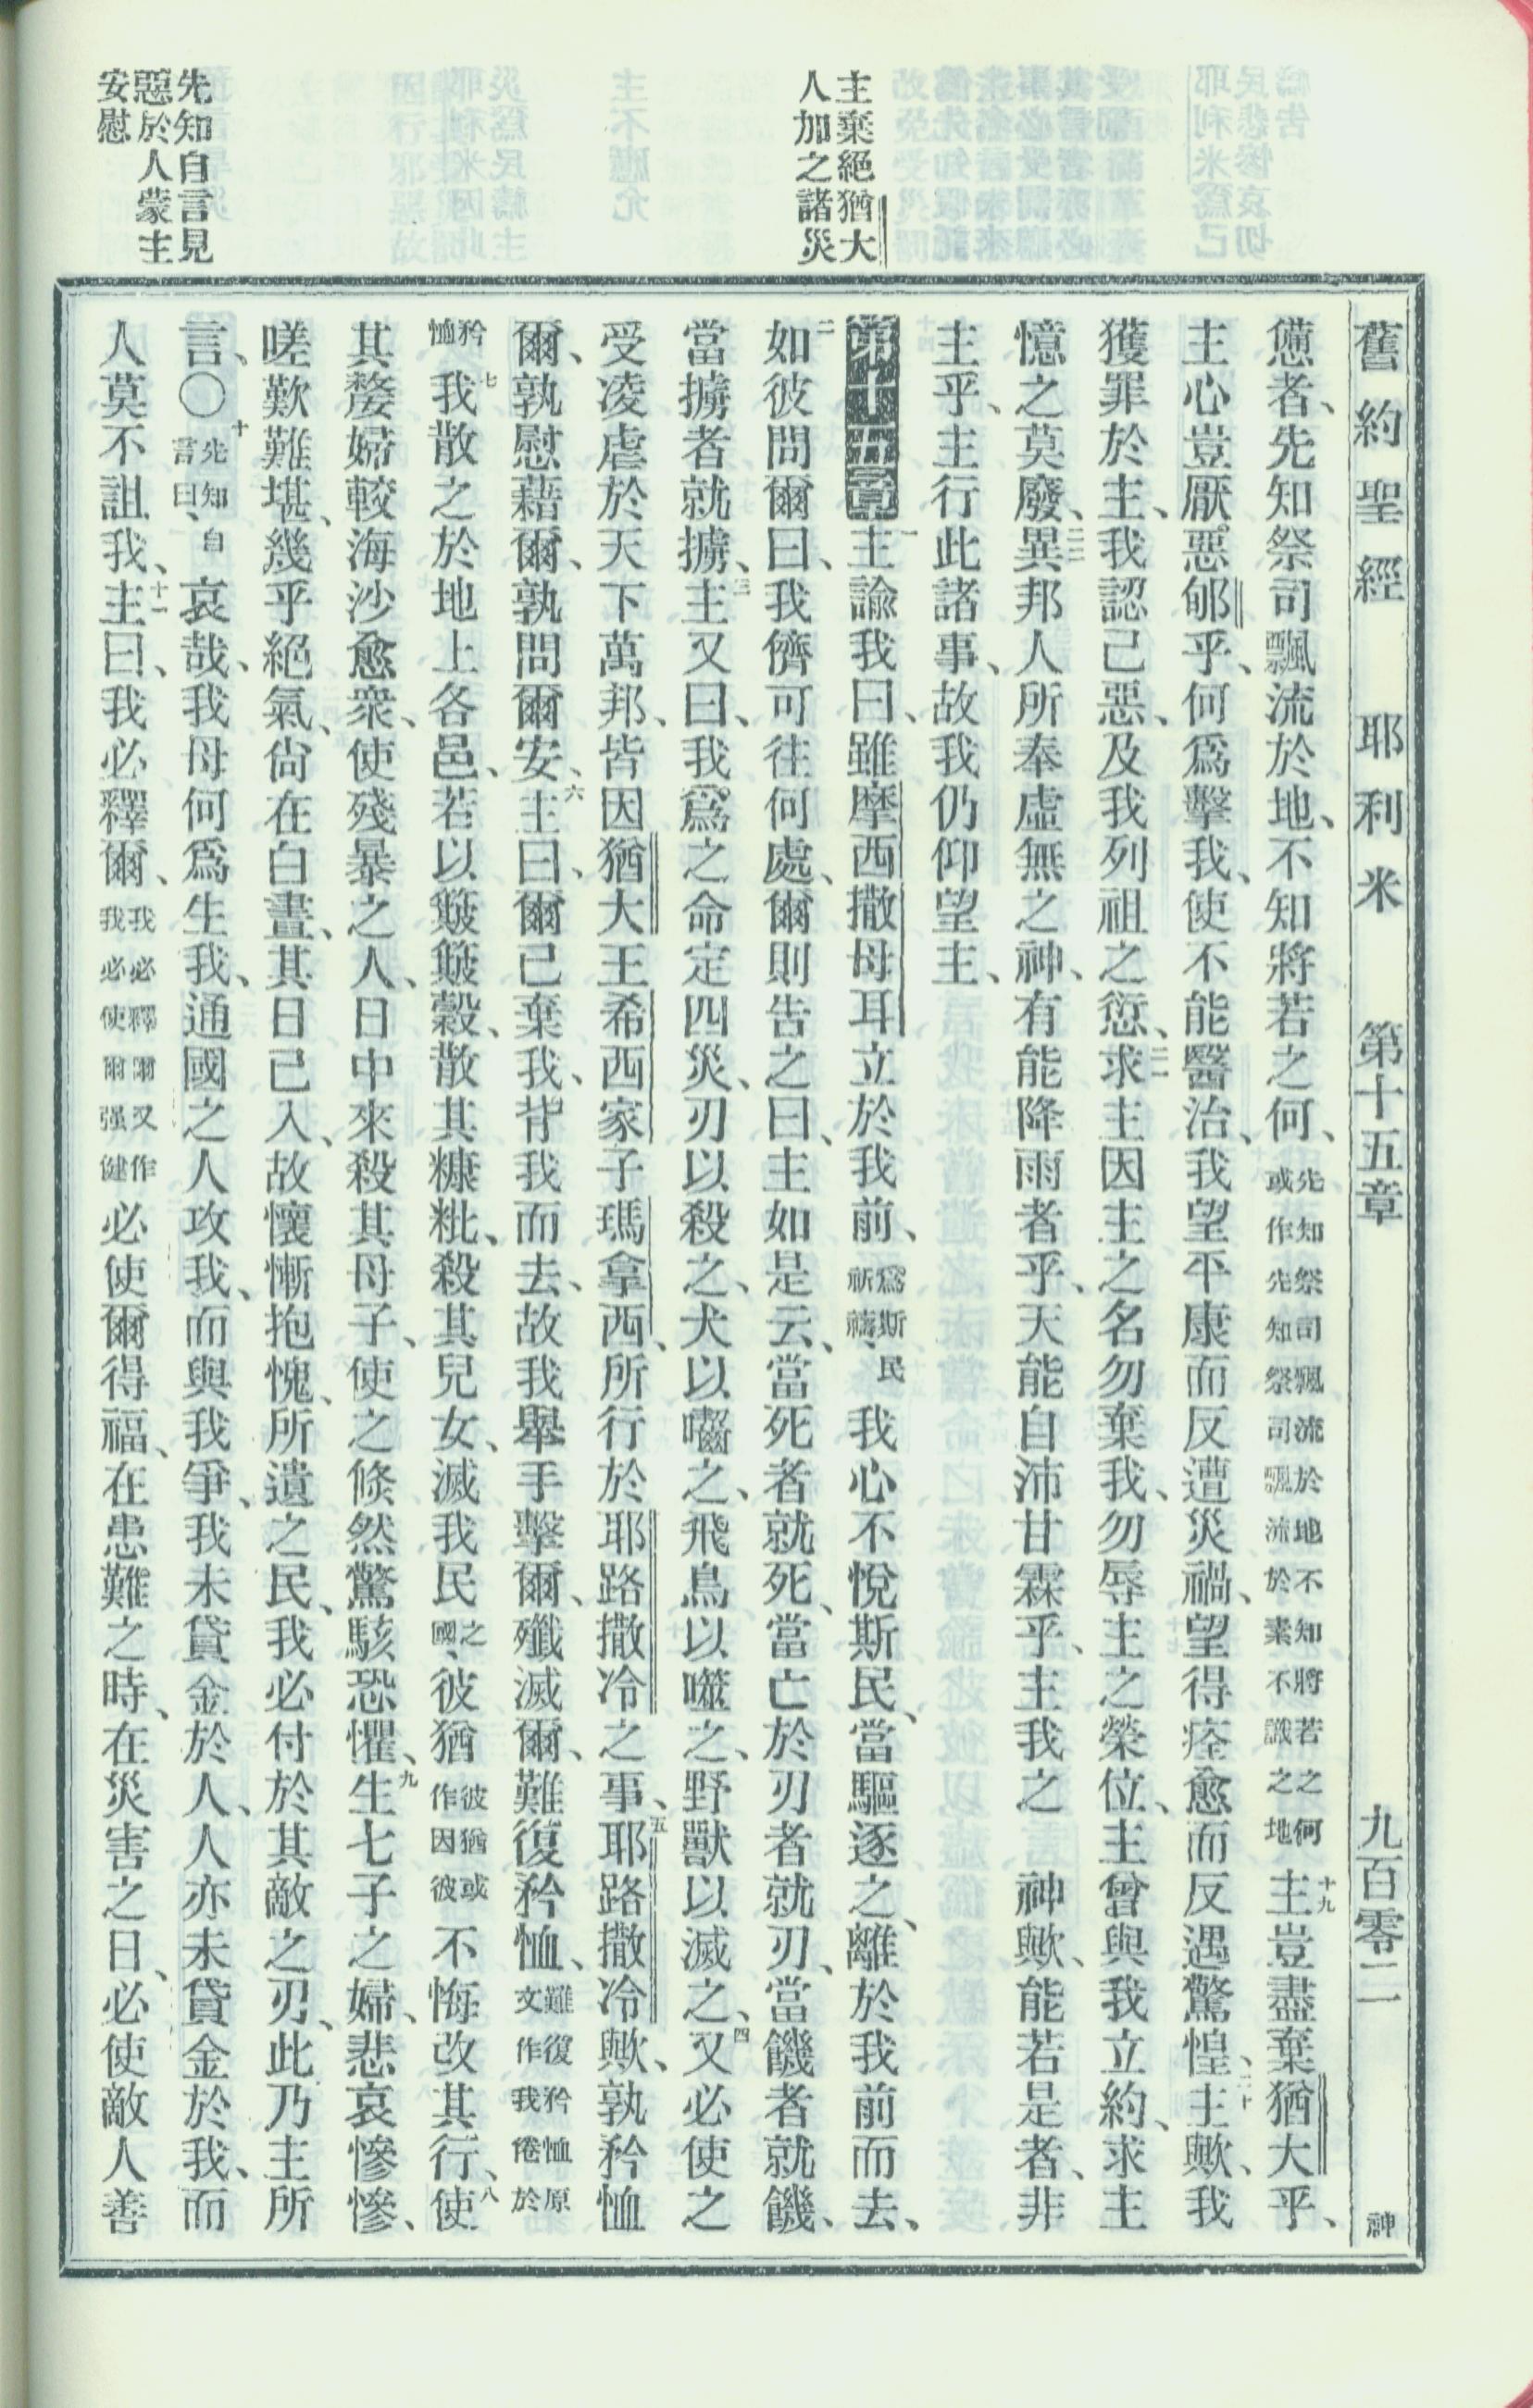 舊約聖經 耶利米 第十五章 九百零二 神
主棄絕猶大
人加之諸災
先知自言見
惡於人蒙主
安慰
憊者、先知祭司飄流於地、不知將若之何、先知祭司飄流於地不知將若之何或作先知祭司飄流於素不識之地十九主豈盡棄猶大乎、
主心豈厭惡郇乎、何爲擊我、使不能醫治、我望平康而反遭災禍、望得痊愈而反遇驚惶、二十主歟、我
獲罪於主、我認己惡、及我列祖之愆、二一求主因主之名勿棄我、勿辱主之榮位、主曾與我立約、求主
憶之莫廢、二二異邦人所奉虛無之神、有能降雨者乎、天能自沛甘霖乎、主我之 神歟、能若是者、非
主乎、主行此諸事、故我仍仰望主、
第十五章一主諭我曰、雖摩西撒母耳立於我前、爲斯民祈禱、我心不悅斯民、當驅逐之、離於我前而去、
二如彼問爾曰、我儕可往何處、爾則告之曰、主如是云、當死者就死、當亡於刃者就刃、當饑者就饑、
當擄者就擄、三主又曰、我爲之命定四災、刃以殺之、犬以嚙之、飛鳥以噬之、野獸以滅之、四又必使之
受凌虐於天下萬邦、皆因猶大王希西家子瑪拿西、所行於耶路撒冷之事、五耶路撒冷歟、孰矜恤
爾、孰慰藉爾、孰問爾安、六主曰、爾已棄我、背我而去、故我舉手擊爾、殲滅爾、難復矜恤、難復矜恤原文作我倦於
矜恤七我散之於地上各邑、若以簸簸糓、散其糠粃、殺其兒女、滅我民之國、彼猶彼猶或作因彼不悔改其行、八使
其嫠婦較海沙愈衆、使殘暴之人、日中來殺其母子、使之倏然驚駭恐懼、九生七子之婦、悲哀慘慘、
嗟歎難堪、幾乎絕氣、尙在白晝、其日已入、故懷慚抱愧、所遺之民、我必付於其敵之刃、此乃主所
言、〇十先知自言曰、哀哉、我母何爲生我、通國之人攻我、而與我爭、我未貸金於人、人亦未貸金於我、而
人莫不詛我、十一主曰、我必釋爾、我必釋爾又作我必使爾强健必使爾得福、在患難之時、在災害之日、必使敵人善